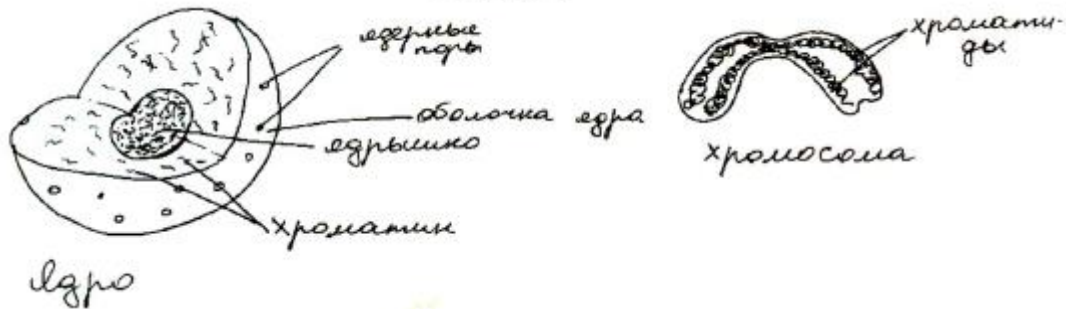 ядерные
поры
оболочка ядра
ядрышко
хроматин
Ядро
хромати-
ды
хромосома